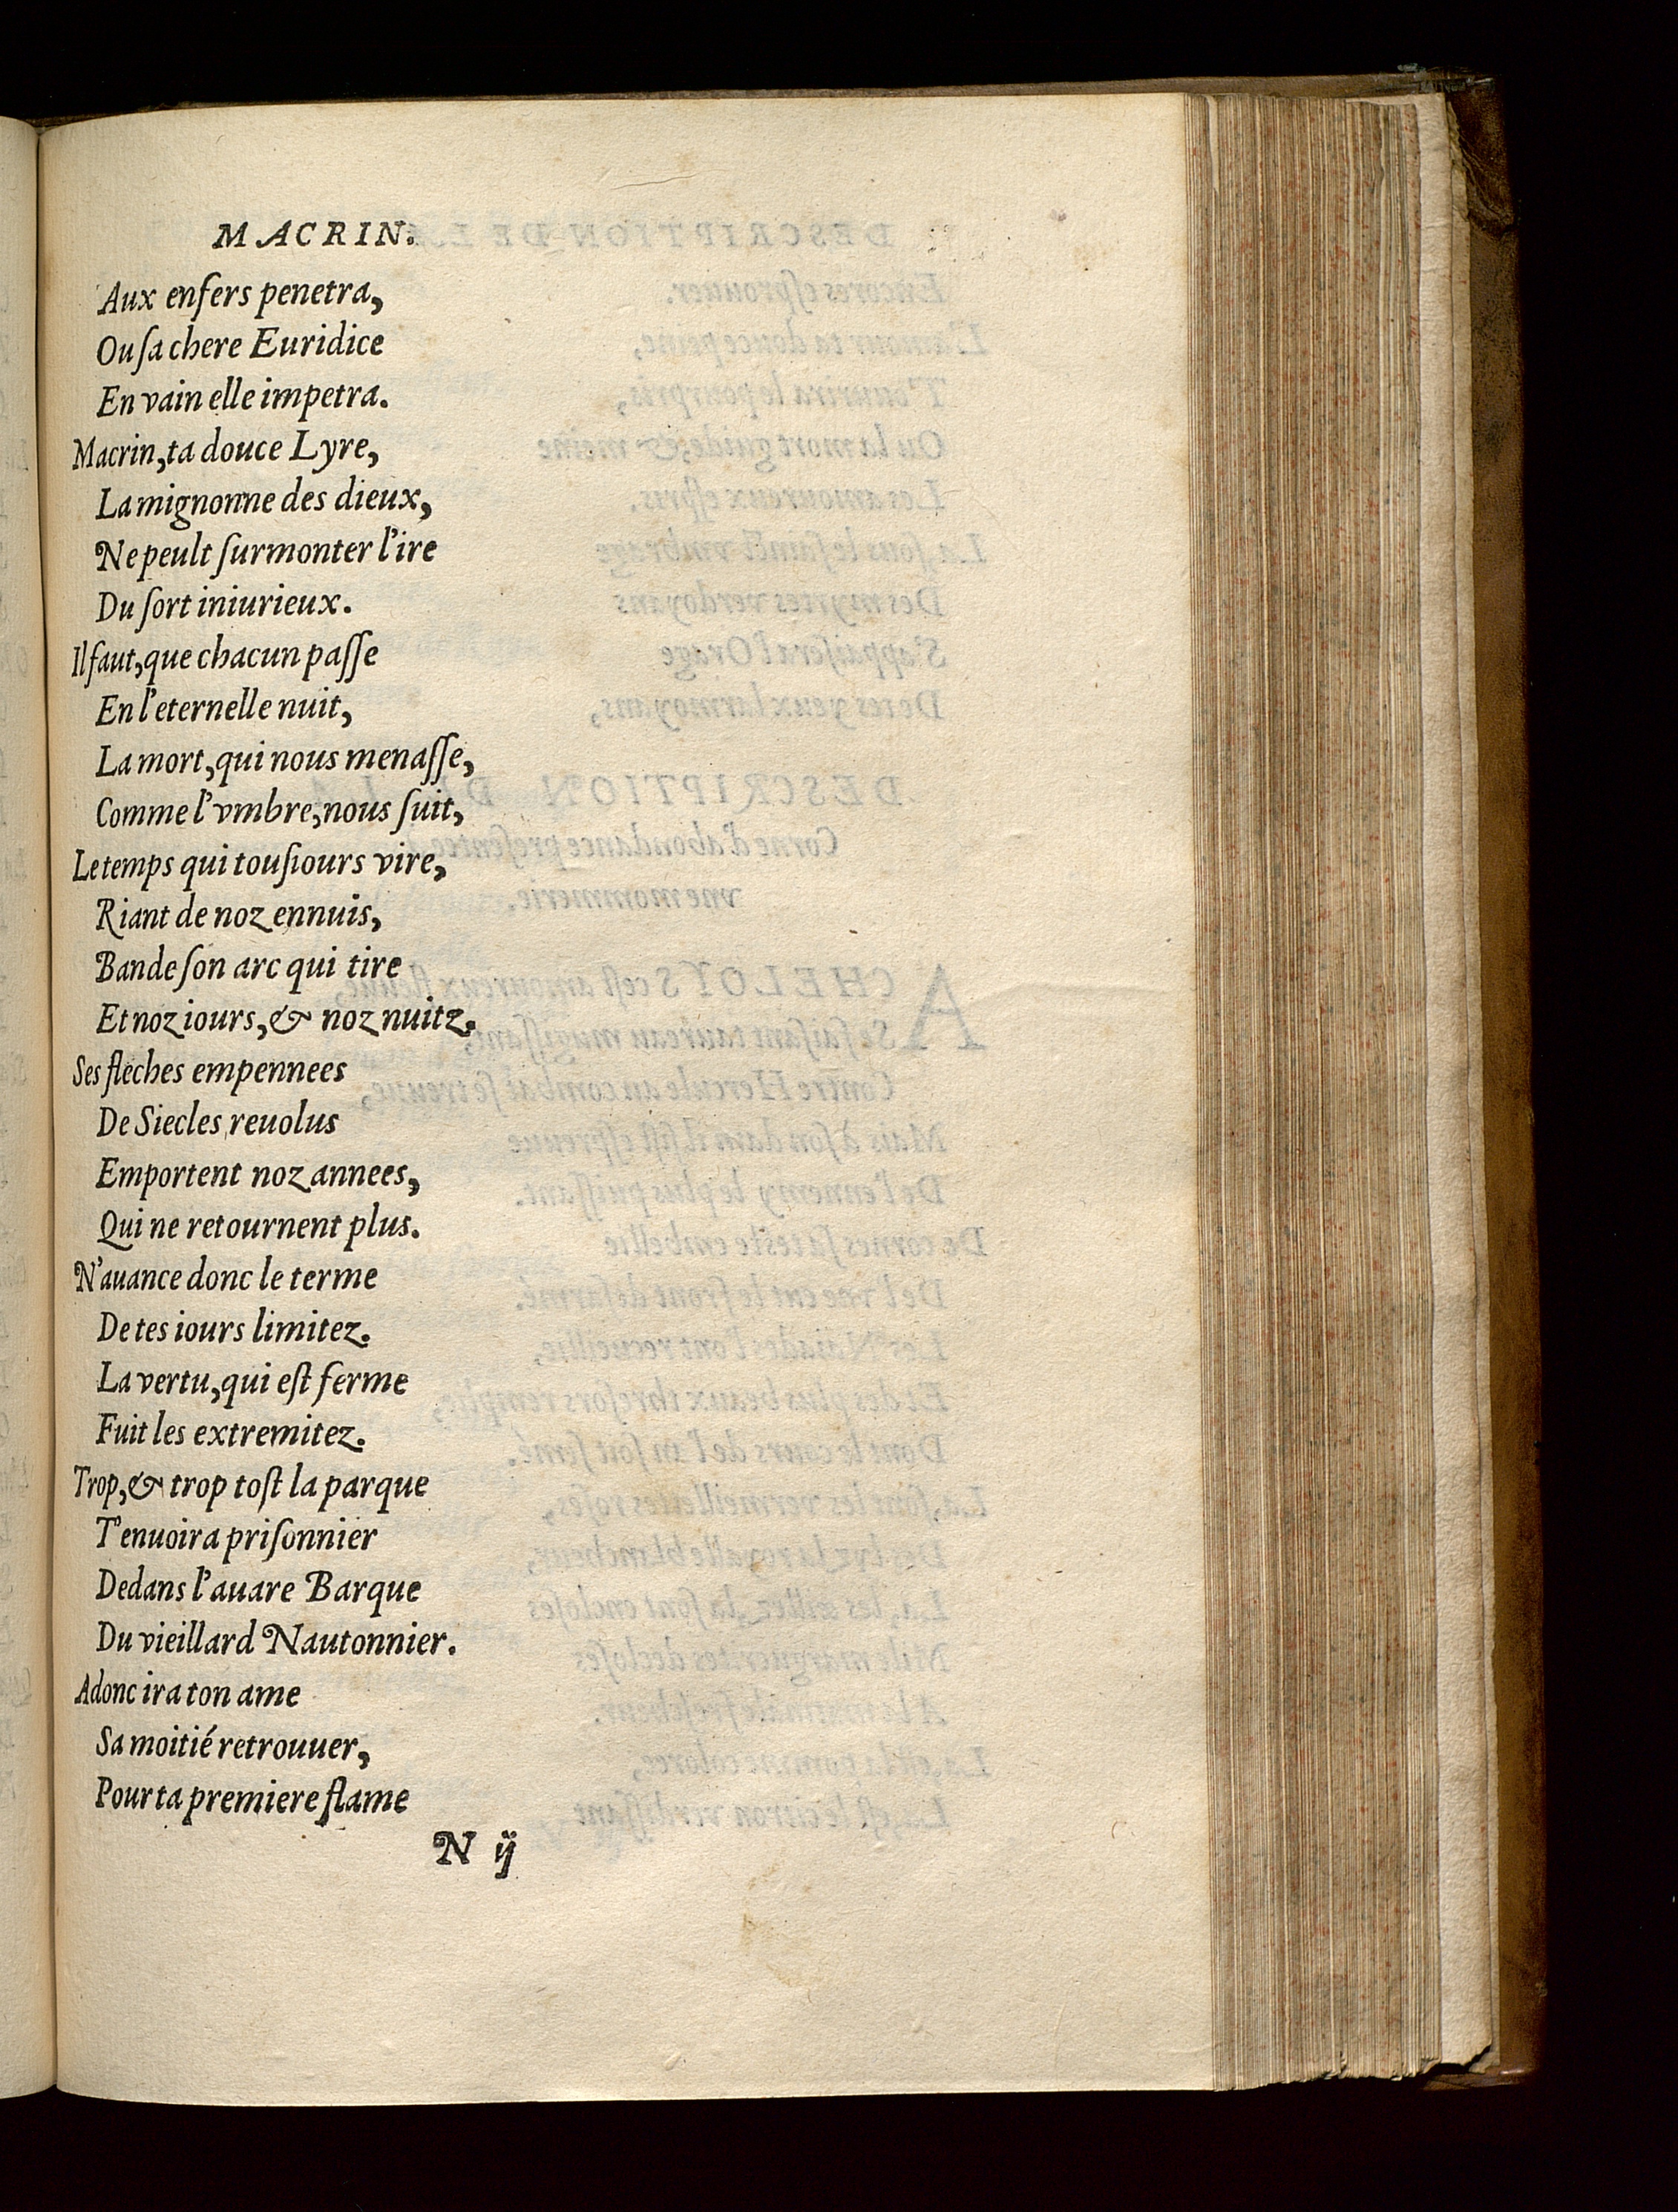 MACRIN.
Aux enfers penetra,
Ou ſa chere Euridice
En vain elle impetra.
Macrin, ta douce Lyre,
La mignonne des dieux,
Ne peult ſurmonter l'ire
Du ſort iniurieux.
Il faut, que chacun paſſe
En l'eternelle nuit,
La mort, qui nous menaſſe,
Comme l'vmbre, nous ſuit,
Le temps qui touſiours vire,
Riant de noz ennuis,
Bande ſon arc qui tire
Et noz iours, & noz nuitz.
Ses fleches empennees
De Siecles reuolus
Emportent noz annees,
Qui ne retournent plus.
N'auance donc le terme
De tes iours limitez.
La vertu, qui eſt ferme
Fuit les extremitez.
Trop, & trop toſt la parque
T'enuoira priſonnier
Dedans l'auare Barque
Du vieillard Nautonnier.
Adonc ira ton ame
Sa moitié retrouuer,
Pour ta premiere flame
N ij